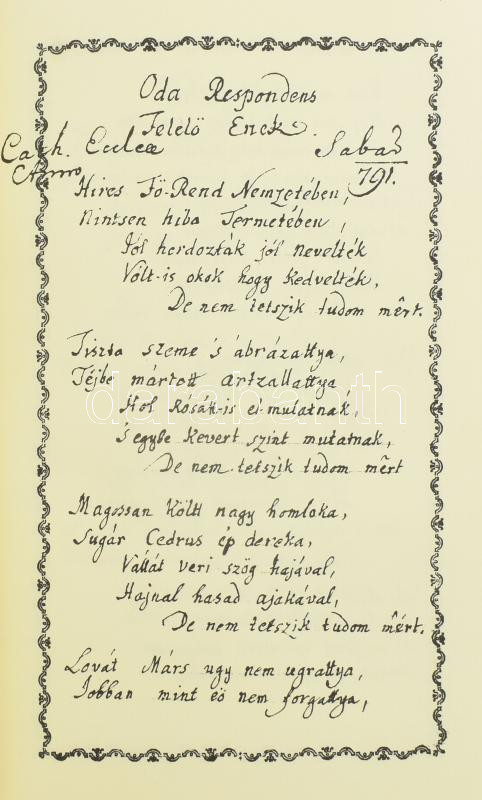 Oda Respondens
Felelö Enek.
Cath. Eccleæ Sabar
Anno 791.
Hires Fö-Rend Nemzetében,
Nintsen hiba Termetében,
Jól hordozták jól nevelték
Vólt-is okok hogy kedvelték,
De nem tetszik tudom mêrt.
Tiszta szeme 's ábrázattya,
Téjbe mártott artzallattya
Hol Rósák-is el-mutatnak,
's egybe kevert szint mutatnak,
De nem tetszik tudom mêrt
Magossan költt nagy homloka,
Sugár Cedrus ép dereka,
Vállát veri szög hajával,
Hajnal hasad ajakával,
De nem tetszik tudom mêrt.
Lovát Márs ugy nem ugrattya,
Jobban mint eö nem forgattya,
darabanth